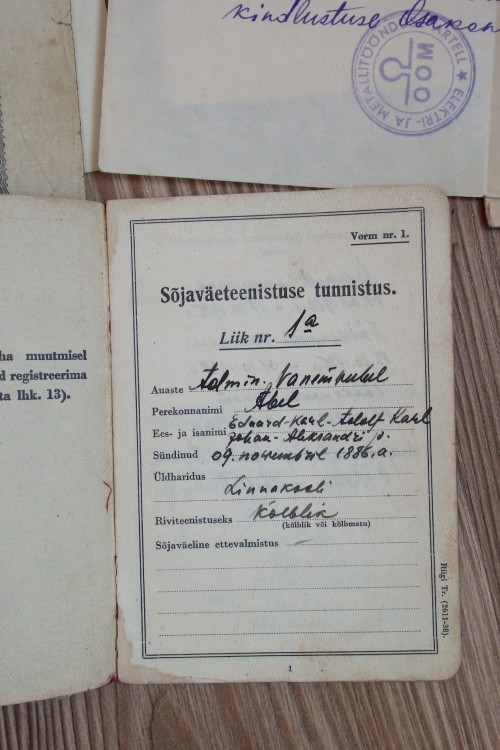 kindlustuse Osakon
METALLITÖÖND
ARTELL ★ ELEKTRI- JA
OOM
ha muutmisel
d registreerima
ta lhk. 13).
Vorm nr. 1.
Sõjaväeteenistuse tunnistus.
Liik nr. 1a
Auaste Admin. Vanempuhel
Perekonnanimi Abel
Ees- ja isanimi Eduard-Karl-Adolf Karl
Johan-Aleksandri p.
Sündinud 09. novembril 1886.a.
Üldharidus
Linnakooli
Riviteenistuseks Kõlblik
(kõlblik või kõlbmatu)
Sõjaväeline ettevalmistus —
Riigi Tr. (2611-38).
1